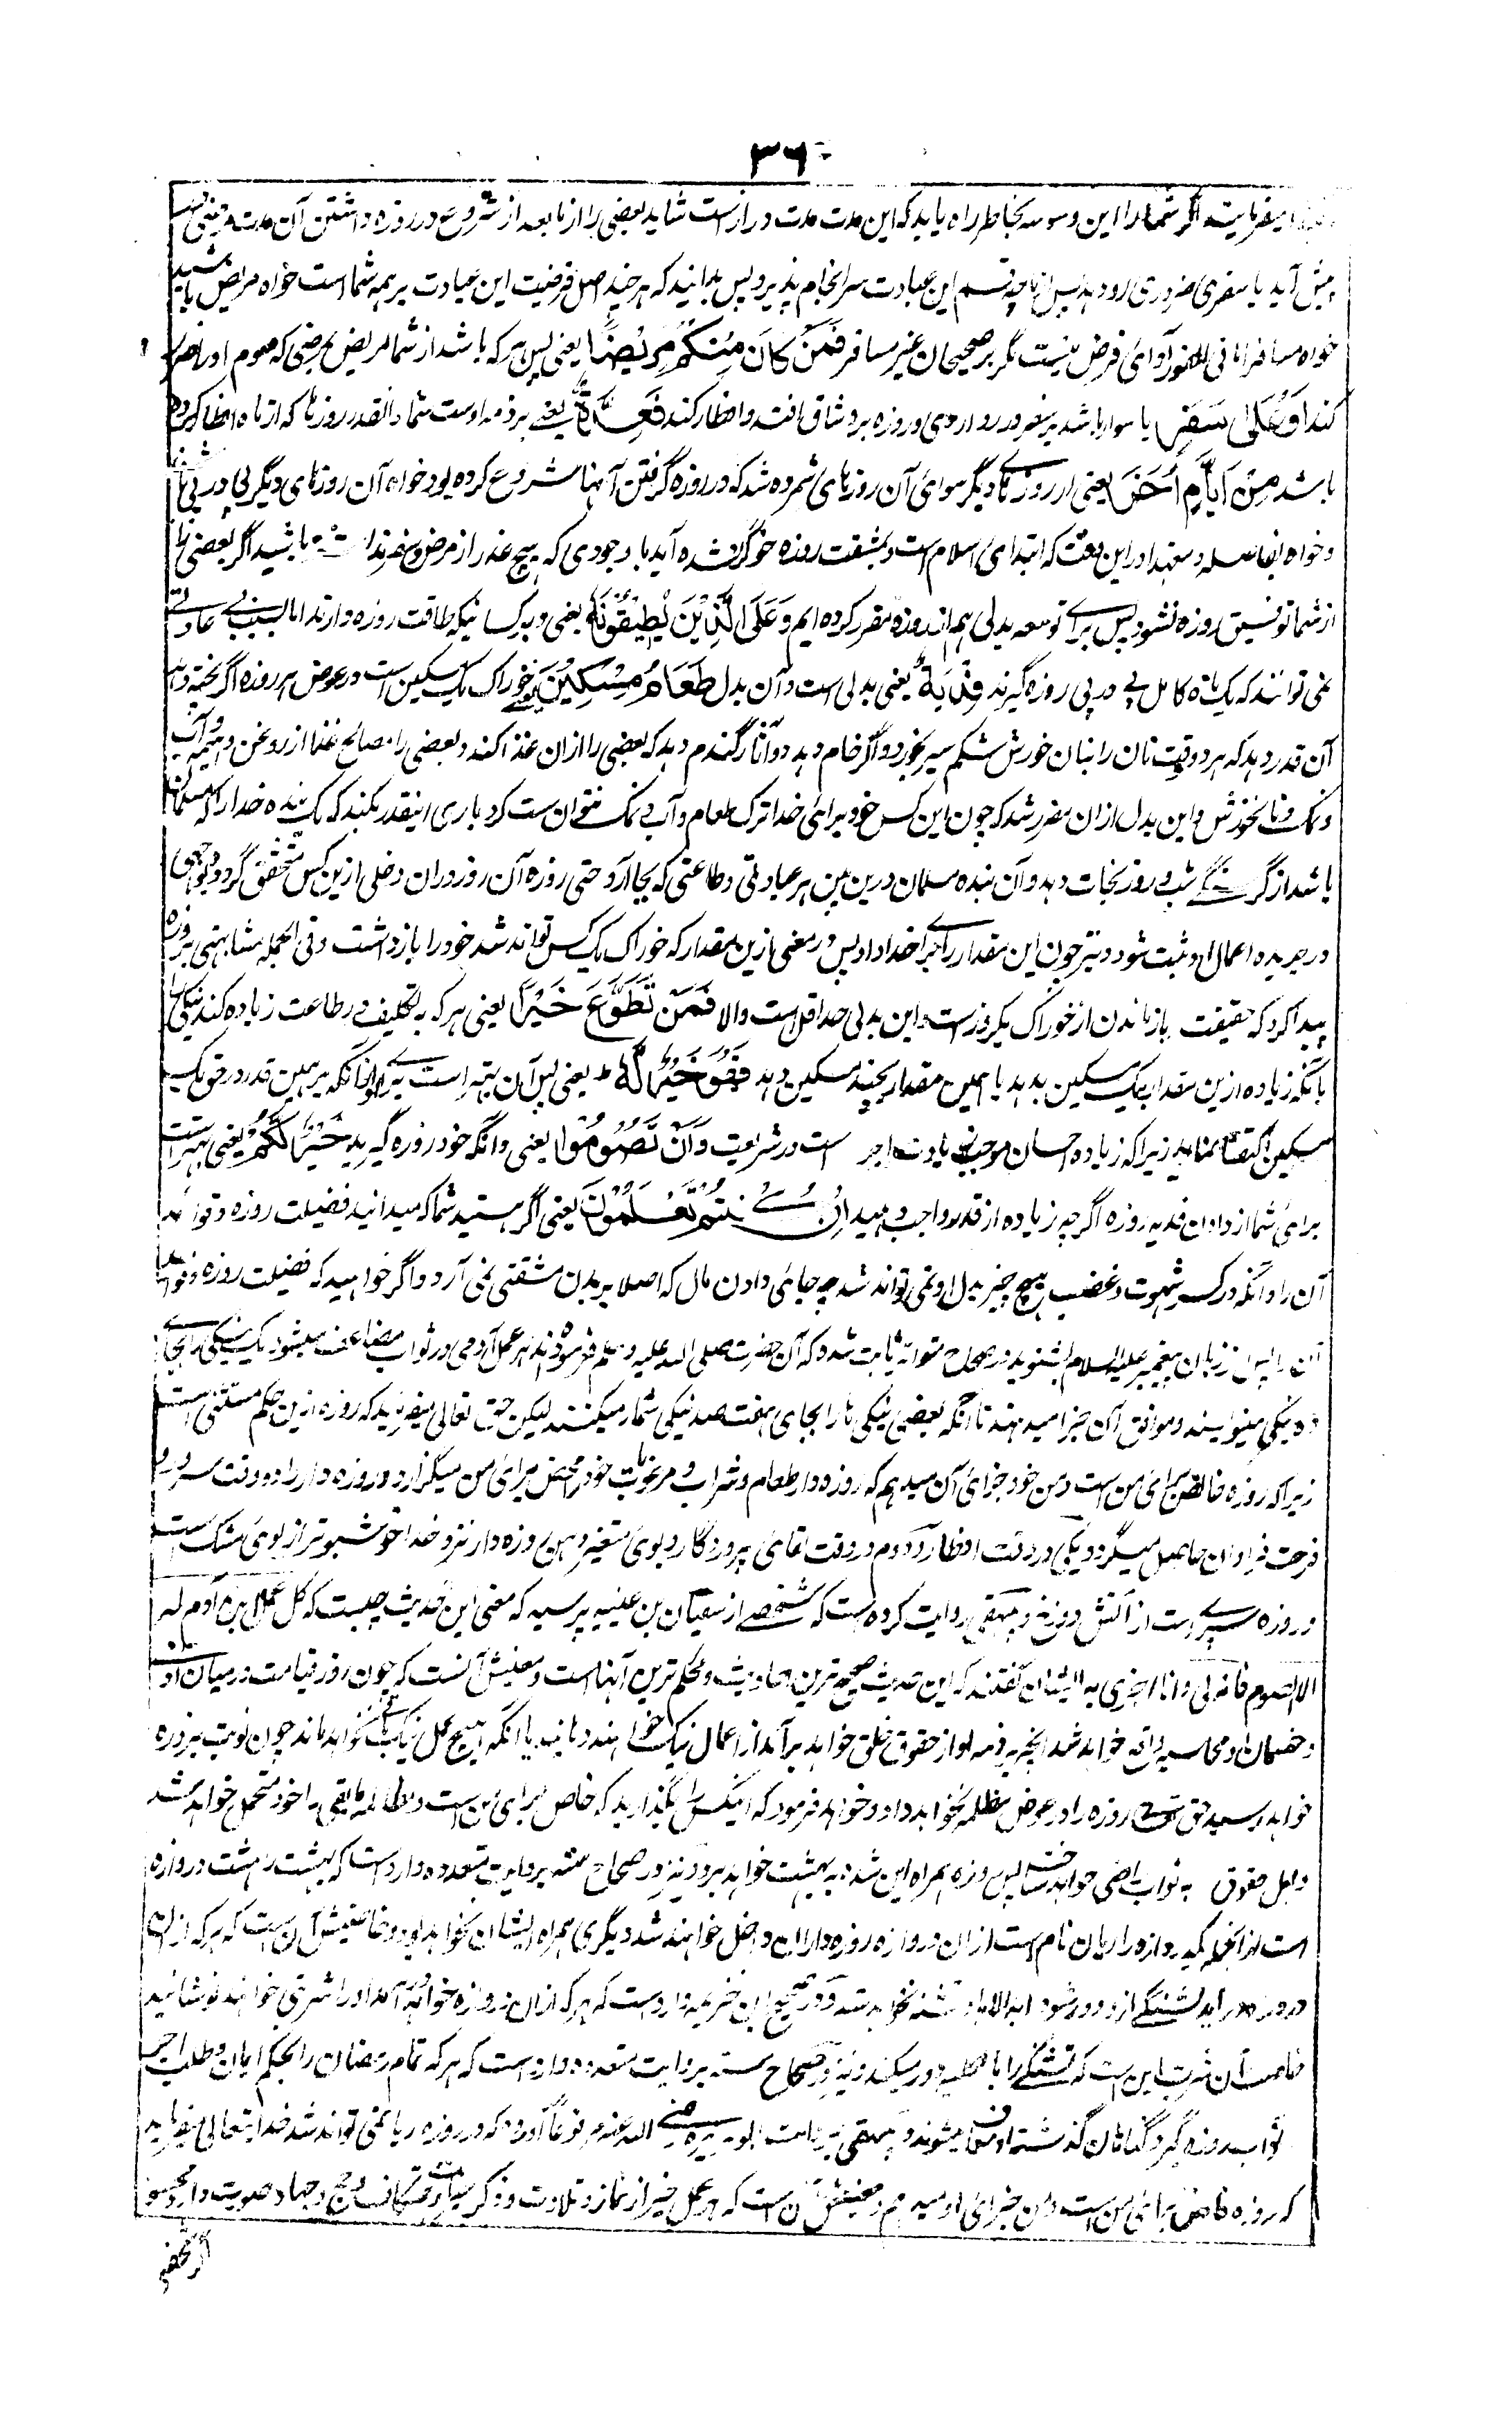 ۳۶۰
میفرمایند اگر شما را این وسوسه بخاطر راه یابد که این مدت مدت دراز است شاید بعضی را از ما بعد از شروع در روزه داشتن آن مدت
پیش آید یا سفری ضروری رو دهد پس از ما چه قسم این عبادت سرانجام پذیرد پس بدانید که هر چند اصل فرضیت این عبادت بر همه شما است خواه مریض باشید
خواه مسافر اما فی الفور ادای فرض نیست مگر بر صحیحان غیر مسافر فَمَنْ كَانَ مِنْكُمْ مَرِيْضًا یعنی پس هر که باشد از شما مریض بمرضی که صوم او را ضرر
کند اَوْ عَلٰى سَفَرٍ یا سوار باشد بر سفر و در رواروی و روزه برو شاق افتد و افطار کند فَعِدَّةٌ یعنی بر ذمه اوست شمار آنقدر روزها که از ماه افطار کرده
باشد مِنْ اَيَّامٍ اُخَرَ یعنی از روزهای دیگر سوای آن روزهای شمرده شد که در روزه گرفتن آنها شروع کرده بود خواه آن روزهای دیگر پی در پی باشند
و خواه بفاصله و معهذا در این وقت که ابتدای اسلام است و بمشقت روزه خوگر نشده آید با وجودی که هیچ عذر از مرض و سفر نداشته باشید اگر بعضی را
از شما توفیق روزه نشود پس برای توسعه بدلی هم از روزه مقرر کرده ایم وَعَلَى الَّذِيْنَ يُطِيْقُوْنَهٗ یعنی و بر کسانیکه طاقت روزه دارند اما بسبب بی عادتی
نمی توانند که یک ماه کامل پی در پی روزه گیرند فِدْيَةٌ یعنی بدلی است و آن بدل طَعَامُ مِسْكِيْنَ یعنی خوراک یک مسکین است در عوض هر روزه اگر پخته دهد
آن قدر دهد که هر دو وقت نان را بنان خورش شکم سیر بخورد و اگر خام دهد دو آثار گندم دهد که بعضی را ازان غذا کند و بعضی را مصالح غذا از روغن و هیمه و آب
و نمک و نانخورش و این بدل ازان مقرر شد که چون این کس خود برای خدا ترک طعام و آب نتوانست کرد باری اینقدر بکند که یک بنده خدا را که مسلمان
باشد از گرسنگی شب و روز نجات دهد و آن بنده مسلمان درین بین هر عبادتی و طاعتی که بجا آرد حتی روزه آن روز دران دخلی ازین کس متحقق گردد و بوجهی
در جریده اعمال او ثبت شود و نیز چون این مقدار را برای خدا داد پس در معنی ازین مقدار که خوراک یک کس تواند شد خود را باز داشت و فی الجمله مشابهتی بروزه
پیدا کرد که حقیقت بازماندن از خوراک یکروز است و این بدلی حد اقل است و الا فَمَنْ تَطَوَّعَ خَيْرًا یعنی هر که به تکلیف در طاعت زیاده کند نیکی را
بآنکه زیاده ازین مقدار بیک مسکین بدهد یا همین مقدار بچند مسکین دهد فَهُوَ خَيْرٌ لَّهٗ یعنی پس آن بهتر است برای او از آنکه بر همین قدر در حق یک
مسکین اکتفا نماید زیرا که زیاده احسان موجب زیادت اجر است در شریعت وَاَنْ تَصُوْمُوْا یعنی و آنکه خود روزه گیرید خَيْرٌ لَّكُمْ یعنی بهتر است
برای شما از دادن فدیه روزه اگرچه زیاده از قدر واجب دهید اِنْ كُنْتُمْ تَعْلَمُوْنَ یعنی اگر هستید شما که میدانید فضیلت روزه و فوائد
آن را و آنکه در کسر شهوت و غضب هیچ چیز بدل او نمی تواند شد چه جای دادن مال که اصلا بر بدن مشقتی نمی آرد و اگر خواهید که فضیلت روزه و فوائد
آن را پس از زبان پیغمبر علیه السلام بشنوید در صحاح متواتر ثابت شده که آن حضرت صلی الله علیه و سلم فرمودند هر عمل آدمی در ثواب مضاعف میشود یک نیکی را بجای
ده نیکی مینویسند و موافق آن جزا میدهند تا آنکه بعضی نیکی ها را بجای هفت صد نیکی شمار میکنند لیکن حق تعالی میفرماید که روزه ازین حکم مستثنی است
زیرا که روزه خالص برای من است و من خود جزای آن میدهم که روزه دار طعام و شراب و مرغوبات خود را محض برای من میگذارد و روزه دار را دو وقت سرور و
فرحت فراوان حاصل میگردد یکی در وقت افطار و دوم در وقت لقای پروردگار و بوی متغیر دهن روزه دار نزد خدا خوشبوتر از بوی مشک است
و روزه سپر است از آتش دوزخ و بیهقی روایت کرده است که شخصی از سفیان بن عیینه پرسید که معنی این حدیث چیست که کل عمل ابن آدم له
الا الصوم فانه لی و انا اجزی به ایشان گفتند که این حدیث صحیح ترین احادیث و محکم ترین آنها است و معنیش آنست که چون روز قیامت درمیان
و خصمان او محاسبه واقع خواهد شد آنچه بر ذمه او از حقوق خلق خواهد برآمد از اعمال نیک خواهند دهانید تا آنکه هیچ عمل نیک نخواهد ماند چون نوبت بروزه
خواهد رسید حق تعالی روزه را در عوض مظلمه نخواهد داد و خواهد فرمود که اینکس را بگذارید که خاص برای من است و مظالم مابقی را خود متحمل خواهد شد
و اهل حقوق به ثواب راضی خواهد ساخت پس روزه همراه این شده به بهشت خواهد برد و نیز در صحاح سته بروایت متعدده وارد است که بهشت را هشت دروازه
است از آنجمله یک دروازه را ریان نام است ازان دروازه روزه داران داخل خواهند شد دیگری همراه ایشان نخواهد بود و خاصیتش آن است که هر که ازان
دروازه در آید تشنگی از و دور شود ابد الاباد تشنه نخواهد شد و در صحیح ابن خزیمه وارد است که هر که ازان دروازه خواهد درآمد او را شربتی خواهند نوشانید
خاصیت آن شربت این است که تشنگی را بالکلیه دور میکند و نیز در صحاح سته بروایت متعدده وارد است که هر که تمام رمضان را بحکم ایمان و طلب اجر
ثواب روزه گیرد گناهان گذشته او معاف میشوند و بیهقی بروایت ابوهریره رضی الله عنه مرفوعاً آورده که در روزه ریا نمی تواند شد خدا تعالی میفرماید
که روزه خالص برای من است و من جزای او میدهم و معنیش آن است که هر عمل خیر از نماز و تلاوت و ذکر و حج و جهاد صورت دارد محسوس
اگر شخصی